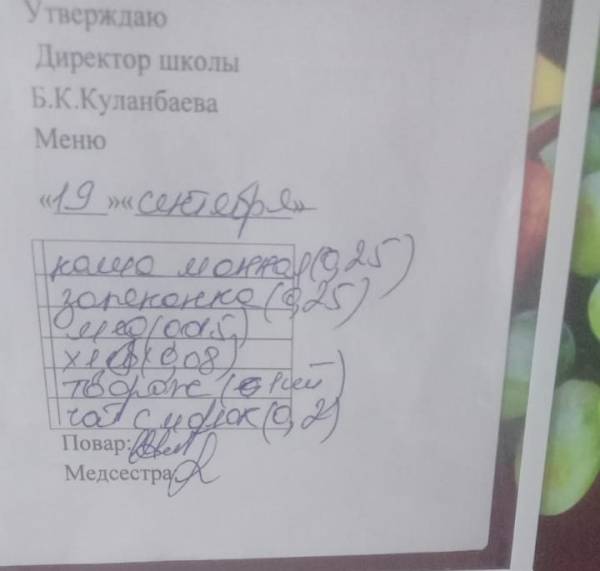 Утверждаю
Директор школы
Б.К.Куланбаева
Меню
«19»«сентября»
каша манная (0,25)
запеканка (0,25)
мёд (0,015)
хлеб (0,08)
творож (1 шт)
чай с молок (0,2)
Повар:
Медсестра